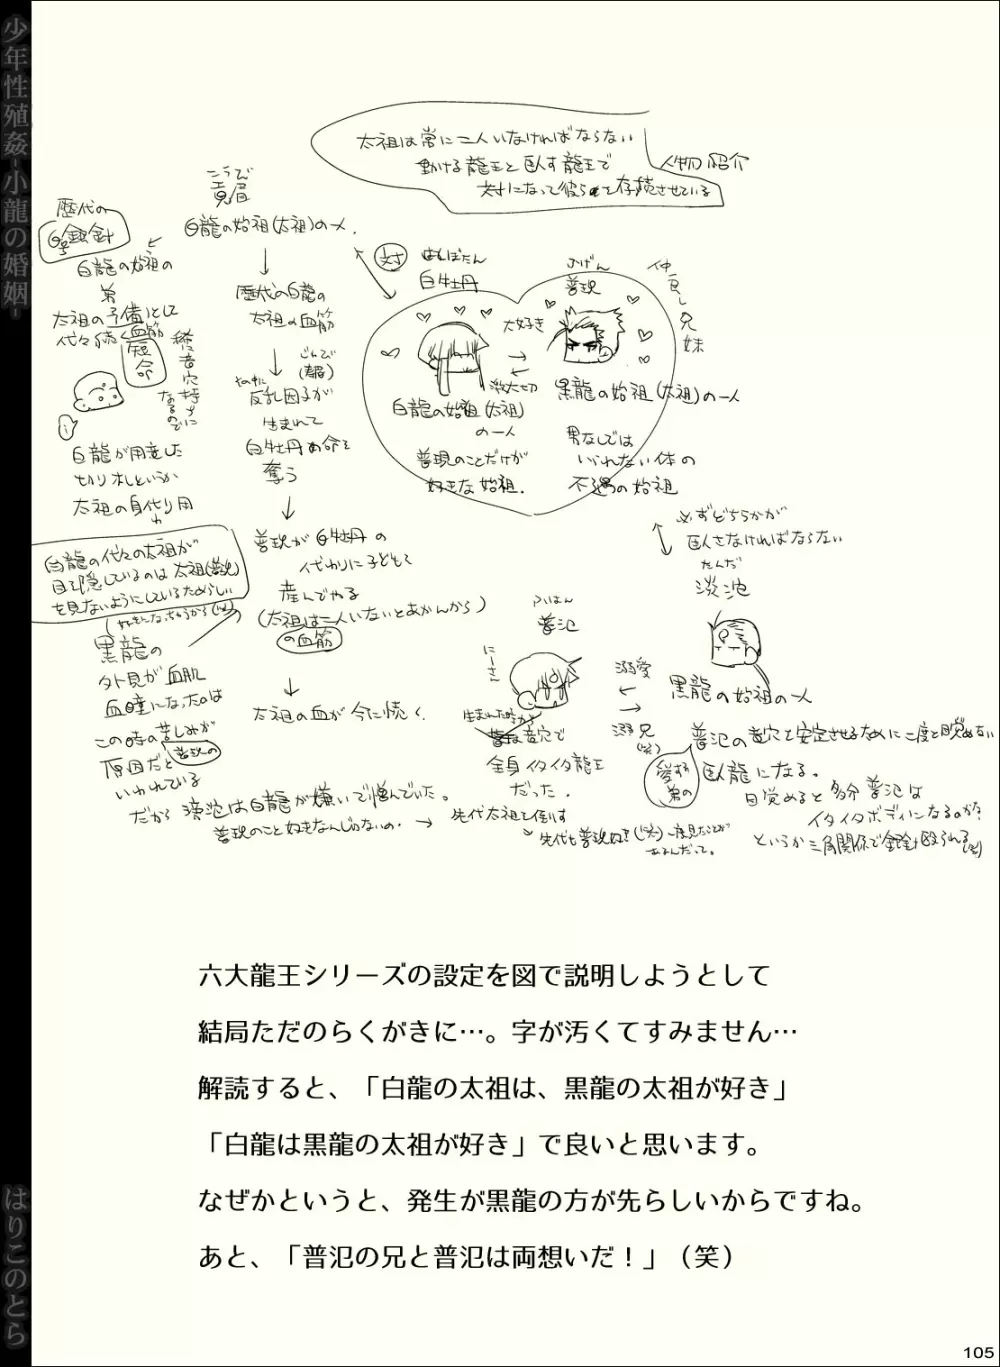 少年性殖姦-小龍の婚姻-
はりこのとら
太祖は常に二人いなければならない
動ける龍王と臥す龍王で
対になって彼らを存続させている
人物紹介
こうび
白龍の始祖(太祖)の一人.
歴代の
銀針
白龍の始祖の
弟
太祖の予備として
代々続く血筋
短命
白龍が用意した
切り札というか
太祖の身代り用
歴代の白龍の
太祖の血筋
反乱因子が
生まれて
白牡丹の命を
奪う
対
はくぼたん
白牡丹
ふげん
普現
仲良し兄妹
大好き
激大切
白龍の始祖(太祖)
の一人
普現のことだけが
好きな始祖.
黒龍の始祖(太祖)の一人
男なしでは
いられない体の
不遇の始祖
必ずどちらかが
臥さなければならない
たんだ
淡沱
黒龍の始祖の一人
普現が白牡丹の
代わりに子どもを
産んでやる
(太祖は二人いないとあかんから)
の血筋
太祖の血が今に続く.
白龍の代々の太祖が
目を隠しているのは太祖(普現)
を見ないようにしているためらしい
黒龍の
外見が血肌
血瞳になったのは
この時の苦しみが
普現の
原因だと
いわれている
ふはん
普氾
にーさん
溺愛
溺兄
(笑)
生まれた時から
竜穴で
全身イタイタ龍王
だった.
愛する
弟の
普氾の竜穴を安定させるために二度と目覚めない
臥龍になる。
目覚めると多分普氾は
イタイタボディになるのか?
というか三角関係で銀針に殴られる(笑)
だから 淡沱は白龍が嫌いで憎んでいた。
普現のこと好きなんじゃないの.
→ 先代太祖を倒す
六大龍王シリーズの設定を図で説明しようとして
結局ただのらくがきに…。字が汚くてすみません…
解読すると、「白龍の太祖は、黒龍の太祖が好き」
「白龍は黒龍の太祖が好き」で良いと思います。
なぜかというと、発生が黒龍の方が先らしいからですね。
あと、「普氾の兄と普氾は両想いだ！」（笑）
105